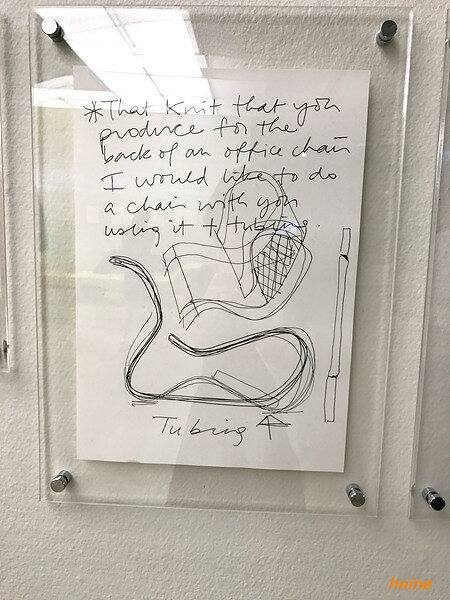 *That Knit that you
produce for the
back of an office chair
I would like to do
a chair with you
using it + tubing.
Tubing
.hnine